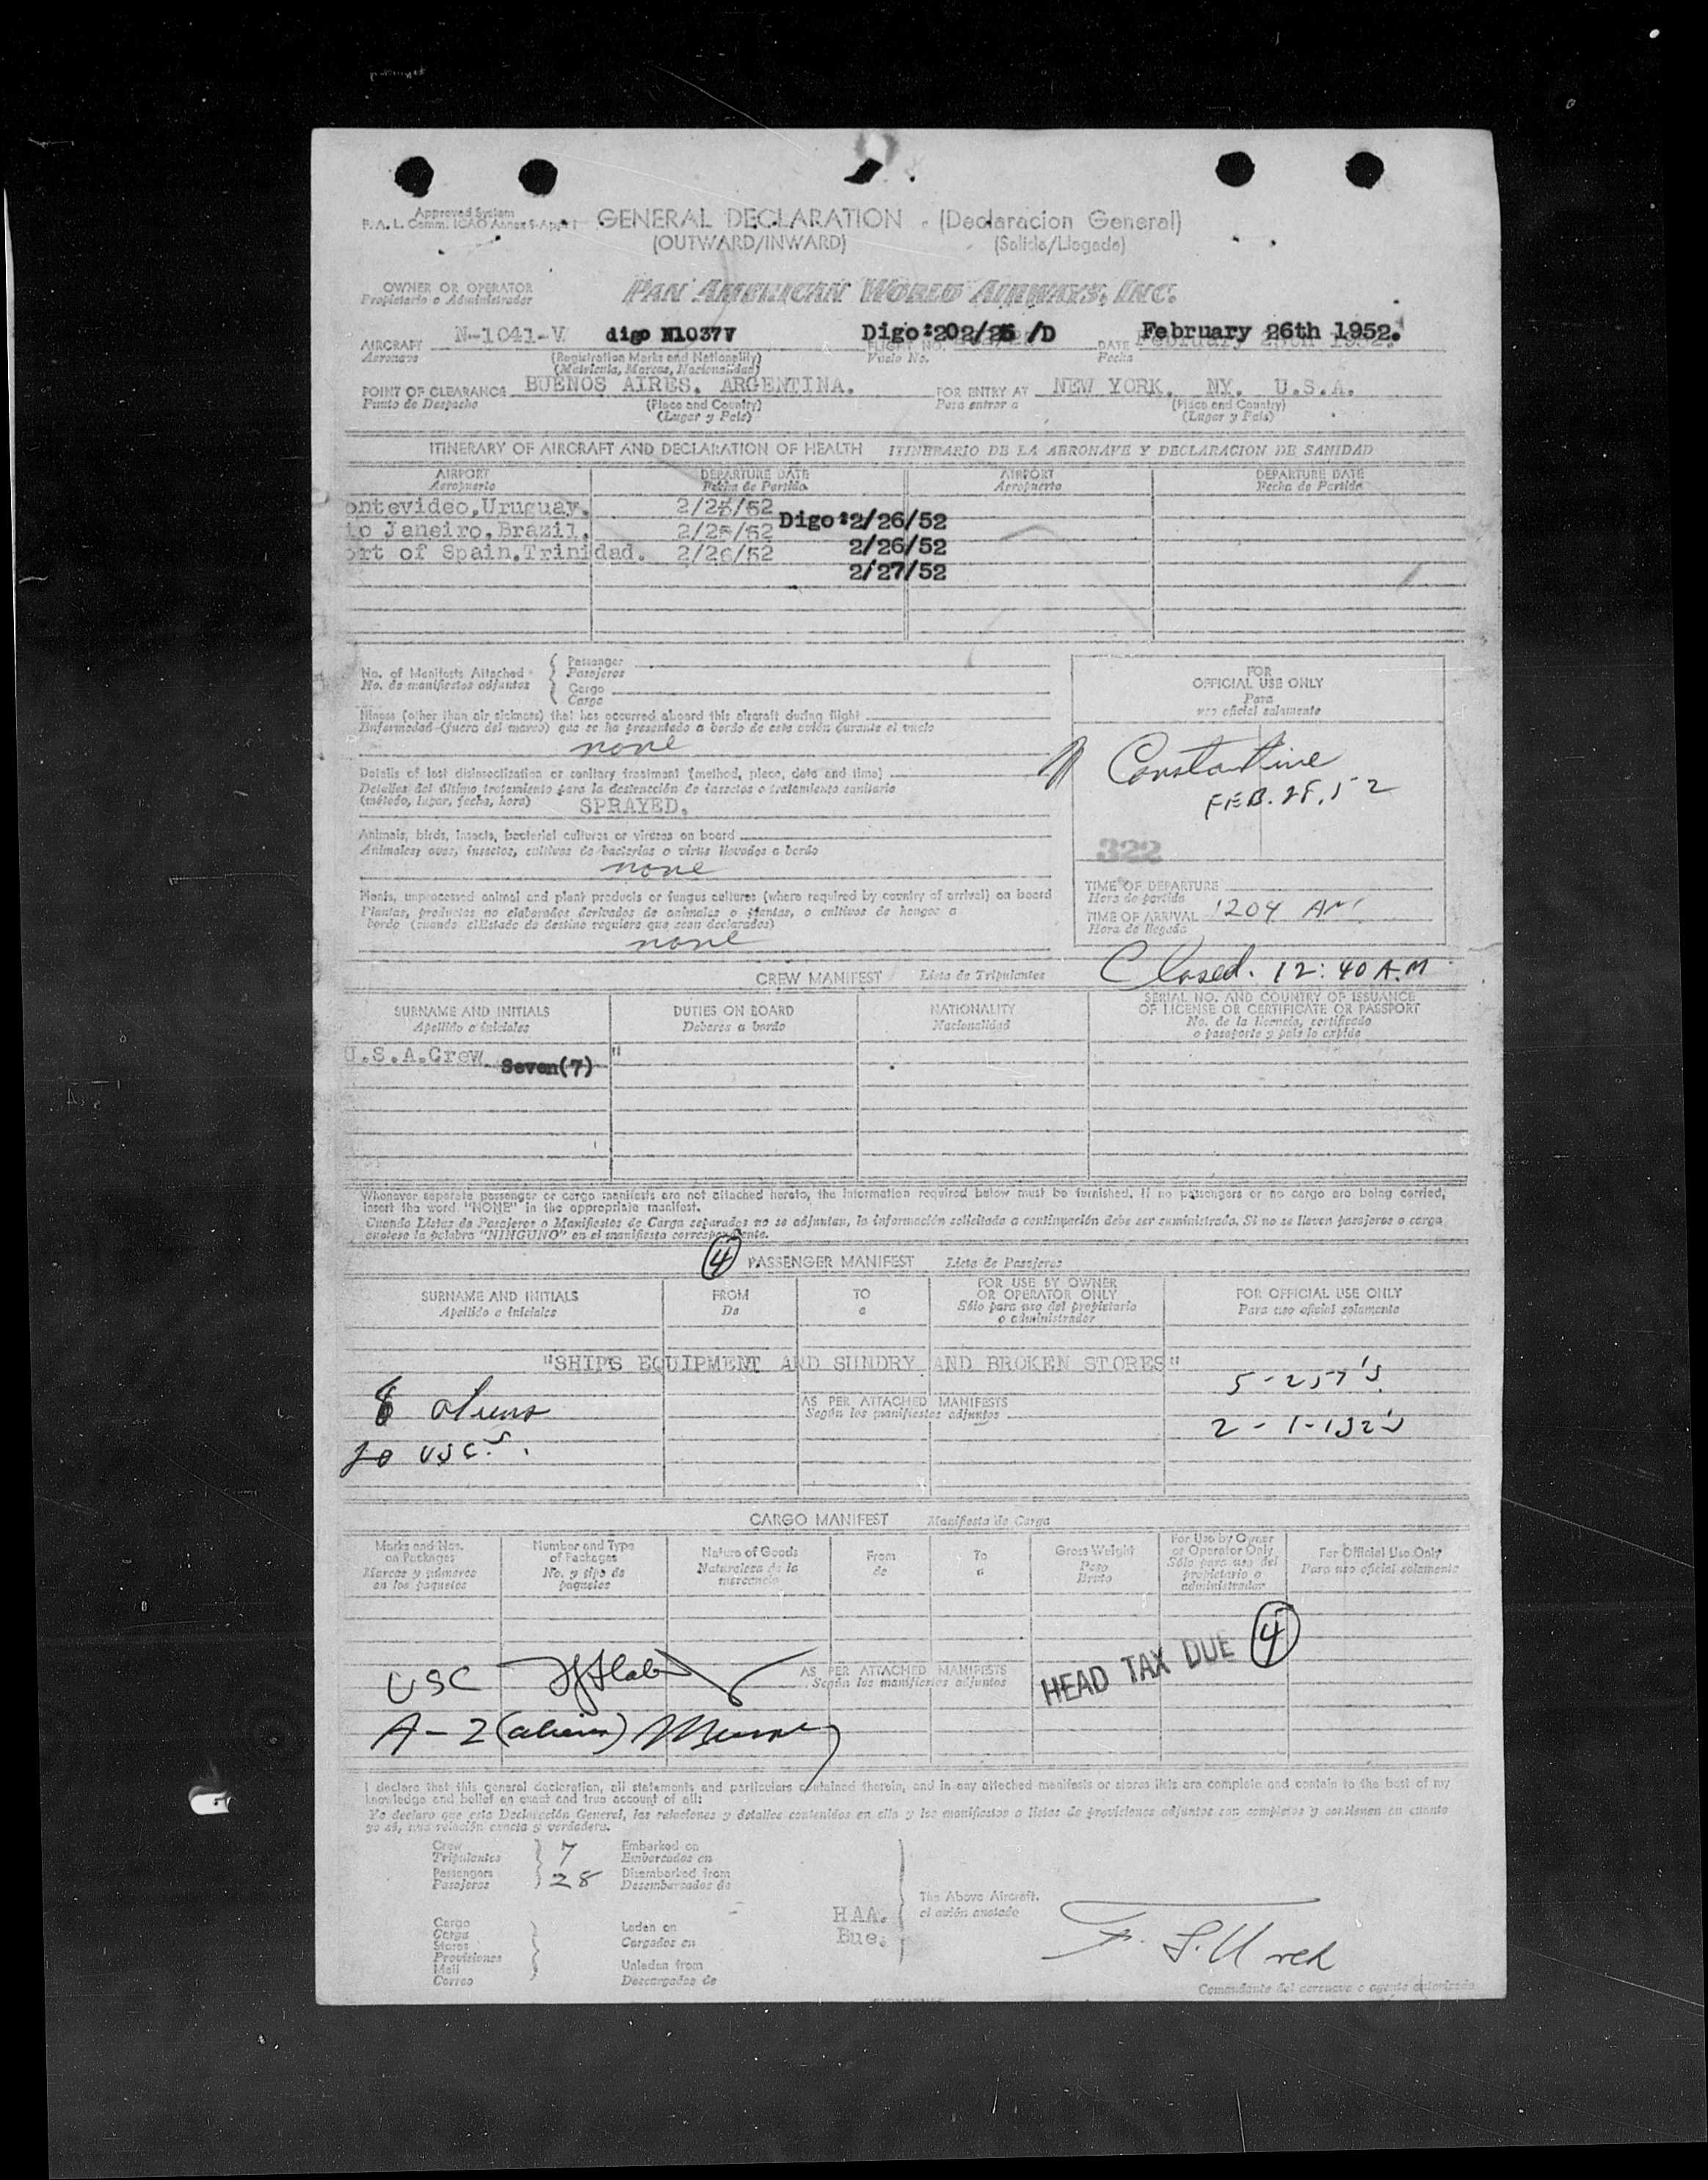 Approved System
F.A.L. Comm. ICAO Annex 9-App. 1
GENERAL DECLARATION - (Declaracion General)
(OUTWARD/INWARD) (Salida/Llegada)
OWNER OR OPERATOR
Propietario o Administrador
PAN AMERICAN WORLD AIRWAYS, INC.
AIRCRAFT N-1041-V digo N1037V Digo:202/25 /D DATE February 26th 1952.
Aeronave (Registration Marks and Nationality) FLIGHT NO. Vuelo No. Fecha
(Matrícula, Marcas, Nacionalidad)
POINT OF CLEARANCE BUENOS AIRES. ARGENTINA. FOR ENTRY AT NEW YORK. NY. U.S.A.
Punto de Despacho (Place and Country) Para entrar a (Place and Country)
(Lugar y País) (Lugar y País)
ITINERARY OF AIRCRAFT AND DECLARATION OF HEALTH ITINERARIO DE LA AERONAVE Y DECLARACION DE SANIDAD
AIRPORT DEPARTURE DATE AIRPORT DEPARTURE DATE
Aeropuerto Fecha de Partida Aeropuerto Fecha de Partida
ontevideo,Uruguay. 2/25/52 Digo:2/26/52
io Janeiro,Brazil. 2/25/52 2/26/52
ort of Spain.Trinidad. 2/26/52 2/27/52
No. of Manifests Attached { Passenger
No. de manifiestos adjuntos Pasajeros
Cargo
Carga
FOR
OFFICIAL USE ONLY
Para
uso oficial solamente
Illness (other than air sickness) that has occurred aboard this aircraft during flight
Enfermedad (fuera del mareo) que se ha presentado a bordo de este avión durante el vuelo
none
Constantine
FEB. 28, 52
Details of last disinsectization or sanitary treatment (method, place, date and time)
Detalles del último tratamiento para la destrucción de insectos o tratamiento sanitario
(método, lugar, fecha, hora) SPRAYED.
Animals, birds, insects, bacterial cultures or viruses on board
Animales, aves, insectos, cultivos de bacterias o virus llevados a bordo
none
322
Plants, unprocessed animal and plant products or fungus cultures (where required by country of arrival) on board
Plantas, productos no elaborados derivados de animales o plantas, o cultivos de hongos a
bordo (cuando el Estado de destino requiera que sean declarados)
none
TIME OF DEPARTURE
Hora de partida
TIME OF ARRIVAL 1204 AM
Hora de llegada
Closed. 12:40 A.M.
CREW MANIFEST Lista de Tripulantes
SURNAME AND INITIALS DUTIES ON BOARD NATIONALITY SERIAL NO. AND COUNTRY OF ISSUANCE
OF LICENSE OR CERTIFICATE OR PASSPORT
Apellido e iniciales Deberes a bordo Nacionalidad No. de la licencia, certificado
o pasaporte y país lo expide
U.S.A.Crew Seven(7) "
Whenever separate passenger or cargo manifests are not attached hereto, the information required below must be furnished. If no passengers or no cargo are being carried,
insert the word "NONE" in the appropriate manifest.
Cuando Listas de Pasajeros o Manifiestos de Carga separados no se adjuntan, la información solicitada a continuación debe ser suministrada. Si no se llevan pasajeros o carga
anotese la palabra "NINGUNO" en el manifiesto correspondiente.
4 PASSENGER MANIFEST Lista de Pasajeros
SURNAME AND INITIALS FROM TO FOR USE BY OWNER
OR OPERATOR ONLY FOR OFFICIAL USE ONLY
Apellido e iniciales De a Sólo para uso del propietario
o administrador Para uso oficial solamente
"SHIPS EQUIPMENT AND SUNDRY AND BROKEN STORES"
5-257's
8 aliens AS PER ATTACHED MANIFESTS
Según los manifiestos adjuntos
2 - I-132's
20 USC's.
CARGO MANIFEST Manifiesto de Carga
Marks and Nos.
on Packages
Marcas y números
en los paquetes
Number and Type
of Packages
No. y tipo de
paquetes
Nature of Goods
Naturaleza de la
mercancía
From
de
To
a
Gross Weight
Peso
Bruto
For Use by Owner
or Operator Only
Sólo para uso del
propietario o
administrador
For Official Use Only
Para uso oficial solamente
HEAD TAX DUE 4
USC
AS PER ATTACHED MANIFESTS
Según los manifiestos adjuntos
A-2 (aliens) Murphy
I declare that this general declaration, all statements and particulars contained therein, and in any attached manifests or stores lists are complete and contain to the best of my
knowledge and belief an exact and true account of all:
Yo declaro que esta Declaración General, las relaciones y detalles contenidos en ella y los manifiestos o listas de provisiones adjuntos son completos y contienen en cuanto
yo sé, una relación exacta y verdadera.
Crew
Tripulantes 7 Embarked on
Embarcados en
Passengers
Pasajeros 28 Disembarked from
Desembarcados de
The Above Aircraft.
el avión anotado
HAA.
Bue.
Cargo
Carga
Stores
Provisiones
Mail
Correo
Laden on
Cargados en
Unladen from
Descargados de
Comandante del aeronave o agente autorizado